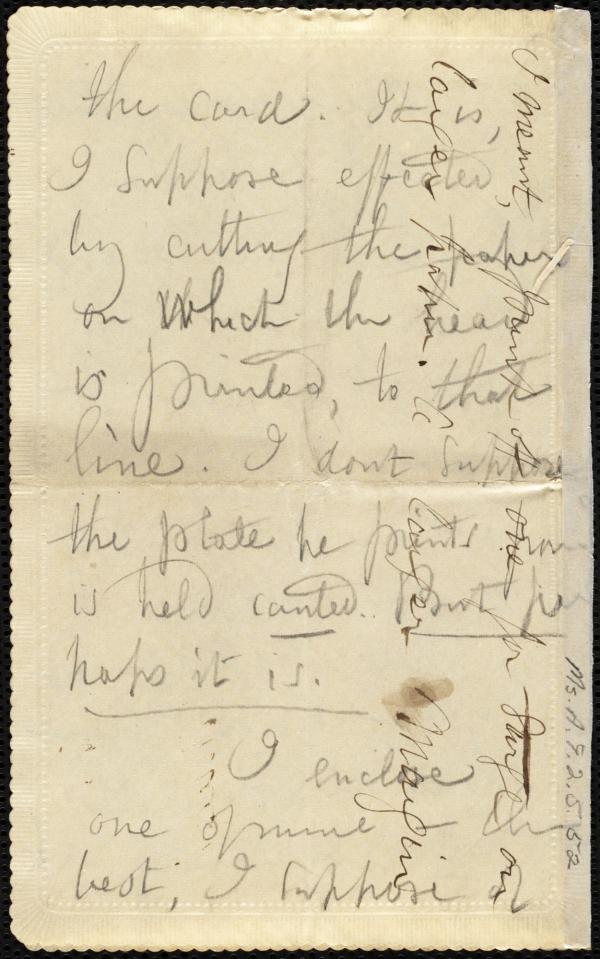 the card. It is,
I suppose effected,
by cutting the paper
on which the
is printed, to that
line. I dont suppose
the plate he prints from
is held canted. But per
haps it is.
I enclose
one of mine - the
best, I suppose of
I meant, print off one for Large or
larger form.
larger Margin
Ms. A.9.2.5.52